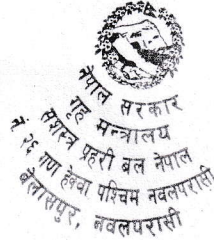 नेपाल सरकार
गृह मन्त्रालय
सशस्त्र प्रहरी बल नेपाल
नं २६ गण हेक्वा पश्चिम नवलपरासी
बेलासपुर, नवलपरासी